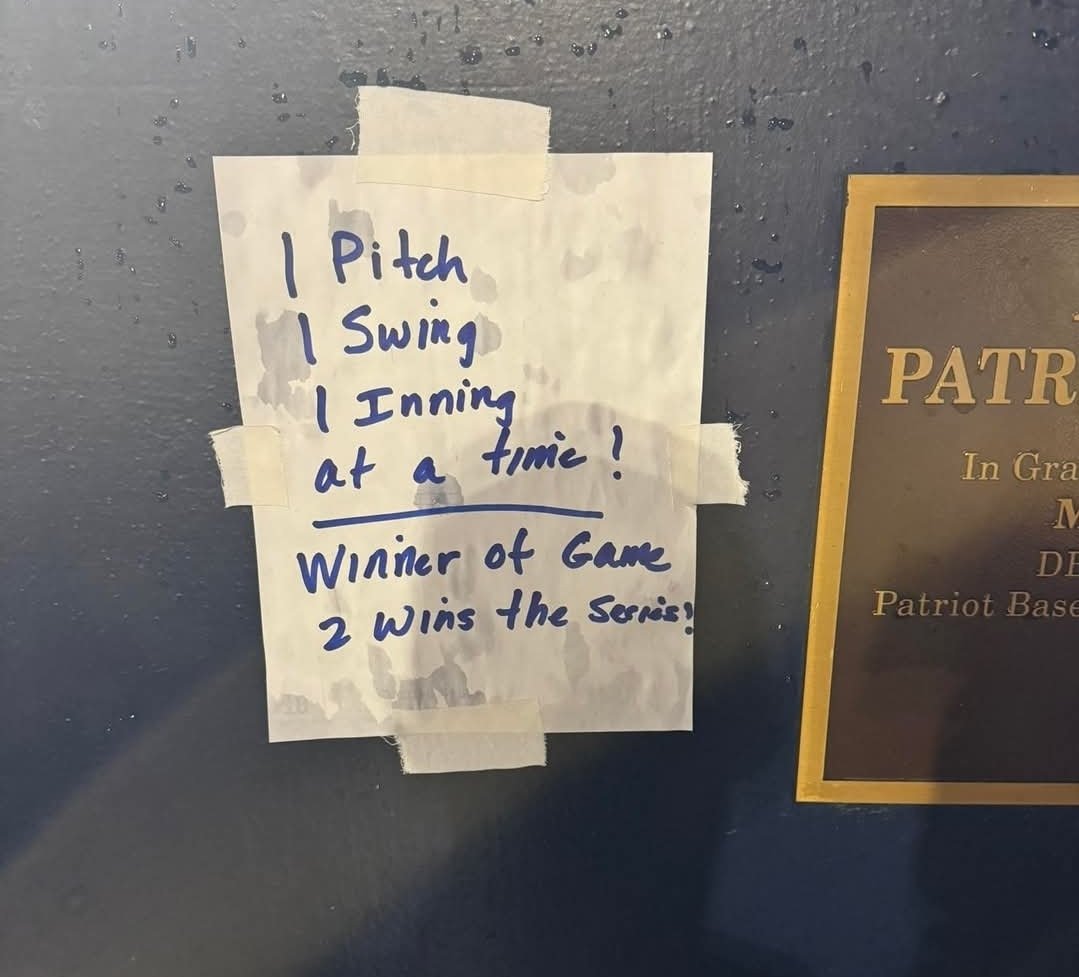 1 Pitch
1 Swing
1 Inning
at a time!
Winner of Game
2 Wins the Series!
PATR
In Gra
M
DE
Patriot Base